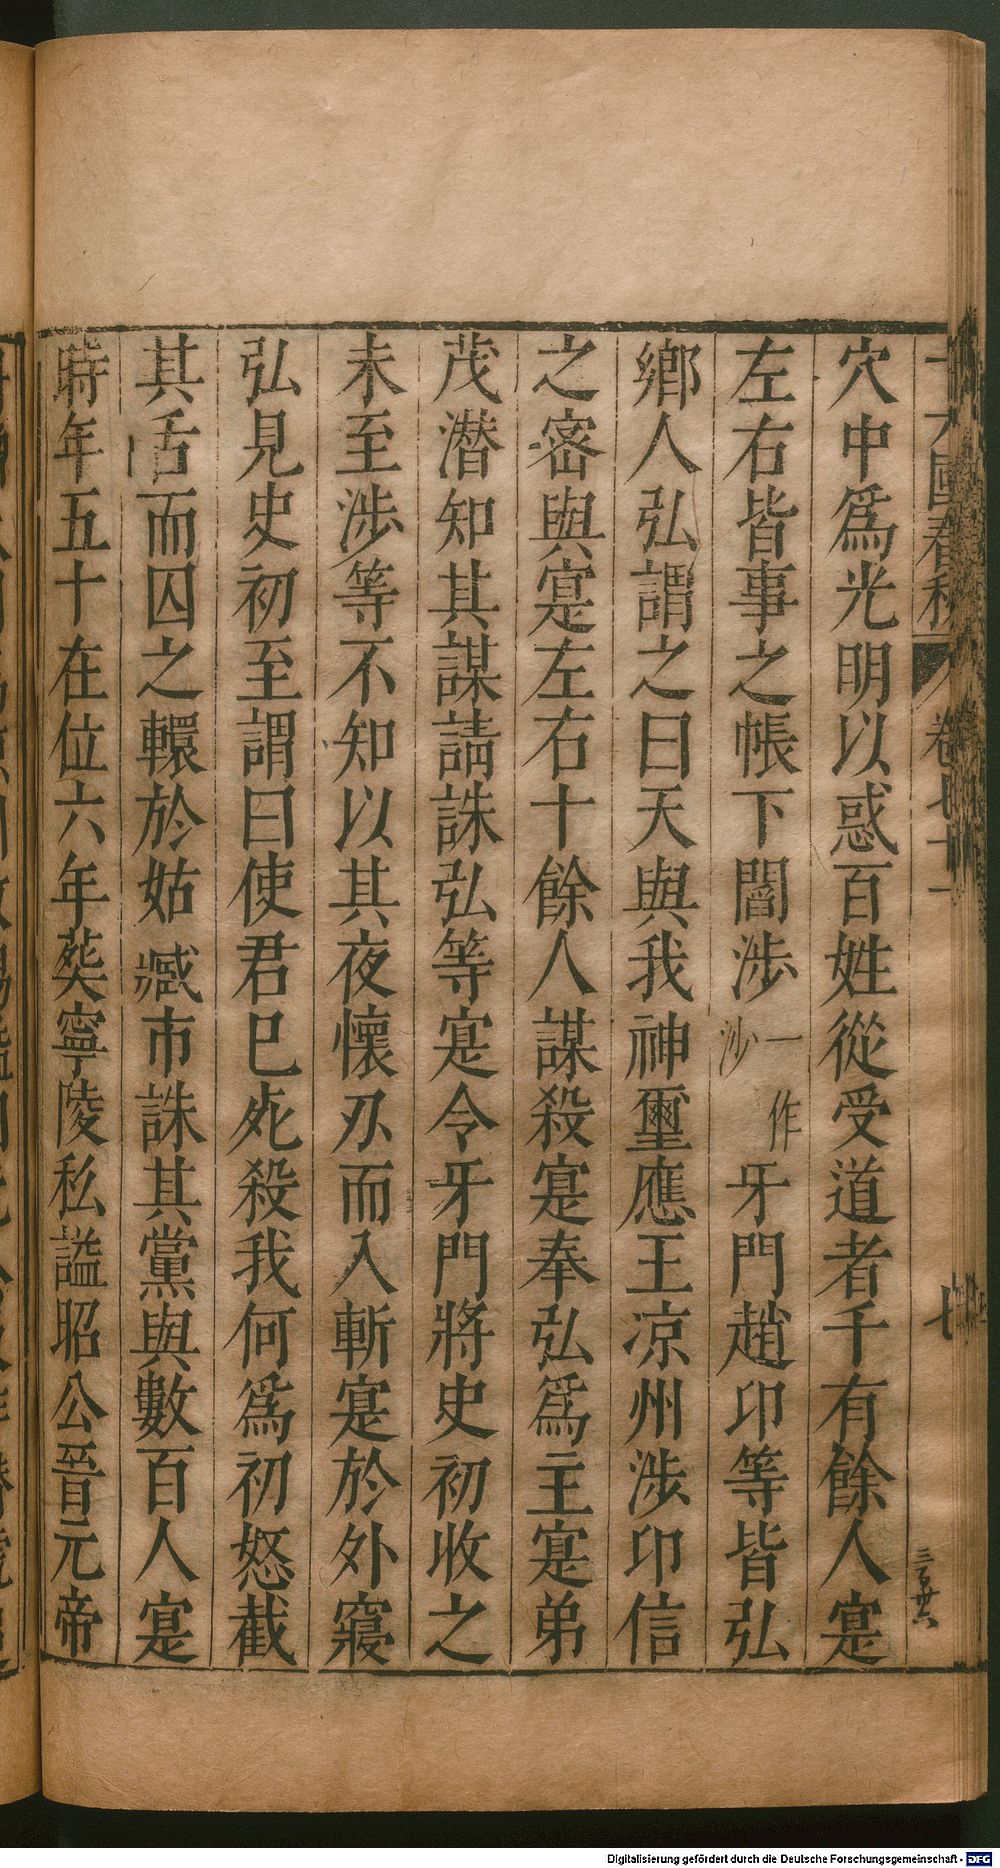 六國春秋 卷七十 七 三百廿六
穴中爲光明以惑百姓從受道者千有餘人寔
左右皆事之帳下閻涉一作沙牙門趙卬等皆弘
鄉人弘謂之曰天與我神璽應王凉州涉卬信
之密與寔左右十餘人謀殺寔奉弘爲主寔弟
茂潛知其謀請誅弘等寔令牙門將史初收之
未至涉等不知以其夜懷刃而入斬寔於外寢
弘見史初至謂曰使君巳死殺我何爲初怒截
其舌而囚之轘於姑臧市誅其黨與數百人寔
時年五十在位六年葬寧陵私謚昭公晉元帝
Digitalisierung gefördert durch die Deutsche Forschungsgemeinschaft - DFG